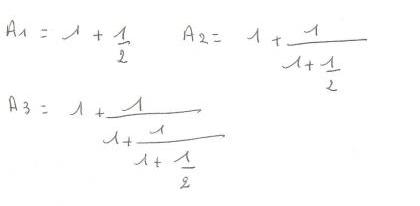 A1 = 1 + 1/2    A2 = 1 + 1/(1 + 1/2)
A3 = 1 + 1/(1 + 1/(1 + 1/2))